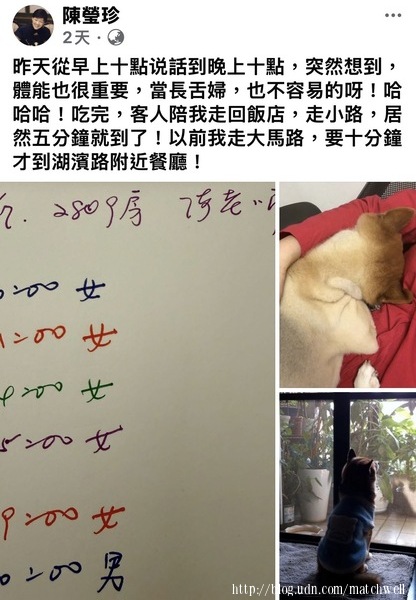 陳瑩珍
2天・
昨天從早上十點说話到晚上十點，突然想到，
體能也很重要，當長舌婦，也不容易的呀！哈
哈哈！吃完，客人陪我走回飯店，走小路，居
然五分鐘就到了！以前我走大馬路，要十分鐘
才到湖濱路附近餐廳！
2809房
0:00 女
1:00 女
4:00 女
5:00 女
9:00 女
0:00 男
http://blog.udn.com/matchwell